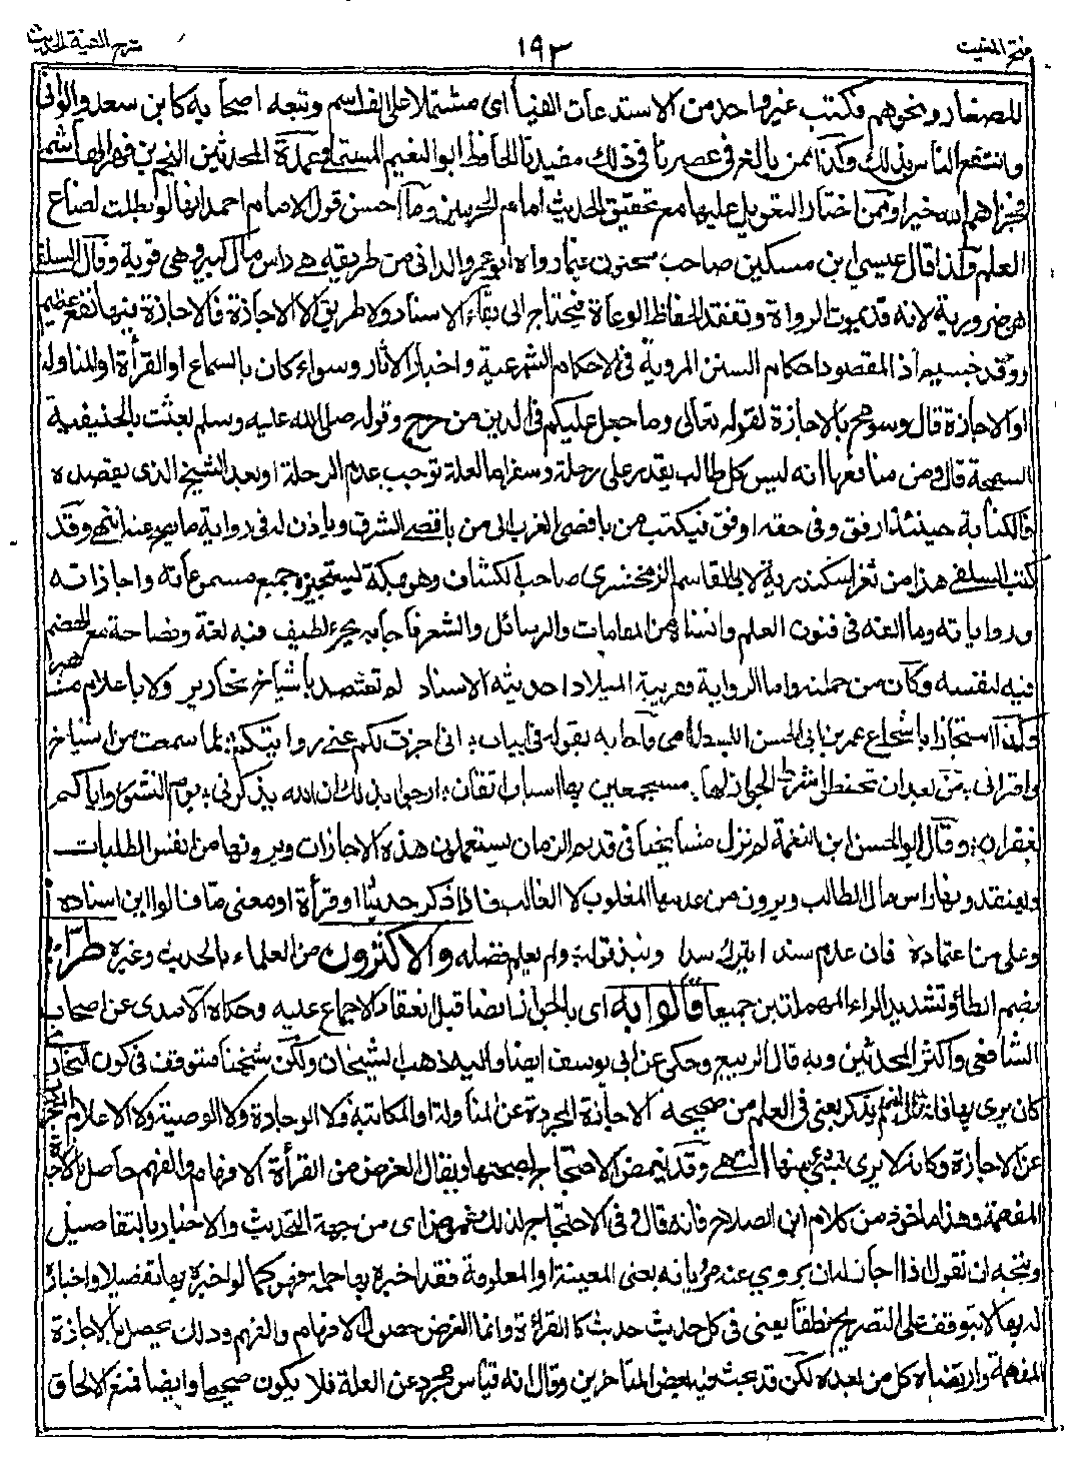 فتح المغيث
١٩٣
شرح الفية الحديث
للصغار ونحوهم فكتب غير واحد من الاستدعات الفيا اى مشتملا على الف اسم وتبعه اصحابه كابن سعد والوانى
وانتفع الناس بذلك وكذا ممن بالغ فى عصرنا فى ذلك مفيدنا الحافظ ابو النعيم المستملى وعمدة المحدثين النجم بن فهد الهاشمى
فجزاهم الله خيرا وممن اختار التعويل عليها مع تحقيق الحديث امام الحرمين وما احسن قول الامام احمد انها لو بطلت لضاع
العلم ولذا قال عيسى ابن مسكين صاحب سحنون فيما رواه ابو عمرو الدانى من طريقه هى راس مال كبير وهى قوية وقال السلفى
هى ضرورية لانه قد يموت الرواة وتفقد الحفاظ الوعاة فيحتاج الى بقاء الاسناد ولا طريق الا الاجازة فالاجازة فيها نفع عظيم
ورفد جسيم اذ المقصود احكام السنن المروية فى الاحكام الشرعية واخبار الآثار وسواء كان بالسماع او القرأة او المناولة
او الاجازة قال وسومح بالاجازة لقوله تعالى وما جعل عليكم فى الدين من حرج وقوله صلى الله عليه وسلم بعثت بالحنيفية
السمحة قال ومن منافعها انه ليس كل طالب يقدر على رحلة وسفر اما لعلة توجب عدم الرحلة او بعد الشيخ الذى يقصده
فالكتابة حينئذ ارفق وفى حقه اوفق فيكتب من باقصى الغرب الى من باقصى الشرق وياذن له فى رواية ما يصح عنه انتهى وقد
كتب السلفى هذا من ثغر اسكندرية لابى القاسم الزمخشرى صاحب الكشاف وهو بمكة ليستجيزه جميع مسموعاته واجازاته
ورواياته وما الفه فى فنون العلم وانشاه من المقامات والرسائل والشعر فاجابه بجزء لطيف فيه لغة وفصاحة مع الهضم
فيه لنفسه وكان من جملته واما الرواية فقريبة الميلاد حديثة الاسناد لم تعتضد باشياخ نحارير ولا باعلام مشاهير
وكذا استجاز ابا شجاع عمر بن ابى الحسن البسطامى فاجابه بقوله فى ابيات انى اجزت لكم عنى روايتكم بما سمعت من اشياخ
واقرانى من بعد ان تحفظوا شرط الجواز لها مستجمعين بها اسباب اتقان ارجو بذلك ان الله يذكرنى يوم النشور واياكم
بغفران وقال ابو الحسن ابن النعمة لم تزل مشايخنا فى قديم الزمان يستعملون هذه الاجازات ويرونها من انفس الطلبات
ويعتقدونها راس مال الطالب ويرون من عدمها المغلوب لا الغالب فاذا ذكر حديثا او قرأة او معنى ما قالوا اين اسناده
وعلى من اعتماده فان عدم سندا ترك سدا ونبذ قوله ولم يعلم فضله والاكثرون من العلماء بالحديث وغيره طرا
بضم الطاء وتشديد الراء المهملتين جميعا قالوا به اى بالجواز ايضا قبل انعقاد الاجماع عليه وحكاه الآمدى عن اصحاب
الشافعى واكثر المحدثين وبه قال الربيع وحكى عن ابى يوسف ايضا واليه ذهب الشيخان ولكن شيخنا متوقف فى كون البخارى
كان يرى بها فانه قال لم يذكر يعنى فى العلم من صحيحه الاجازة المجردة عن المناولة او المكاتبة ولا الوجادة ولا الوصية ولا الاعلام المجردة
عن الاجازة وكانه لا يرى بشئ منها انتهى وقد غمض الاحتجاج لصحتها ويقال الغرض من القرأة الافهام والفهم حاصل بالاجازة
المفهمة وهذا ماخوذ من كلام ابن الصلاح فانه قال وفى الاحتجاج لذلك غموض اى من جهة التحديث والاخبار بالتفاصيل
ويتجه ان نقول اذا اجاز له ان يروى عنه مروياته يعنى المعينة او المعلومة فقد اخبره بها جملة فهو كما لو اخبره بها تفصيلا واخباره
له بها لا يتوقف على التصريح نطقا يعنى فى كل حديث حديث كالقرأة وانما الغرض حصول الافهام والفهم وذلك يحصل بالاجازة
المفهمة وارتضاه كل من بعده لكن قد بحث فيه بعض المتأخرين وقال انه قياس مجرد عن العلة فلا يكون صحيحا وايضا فمنع الالحاق